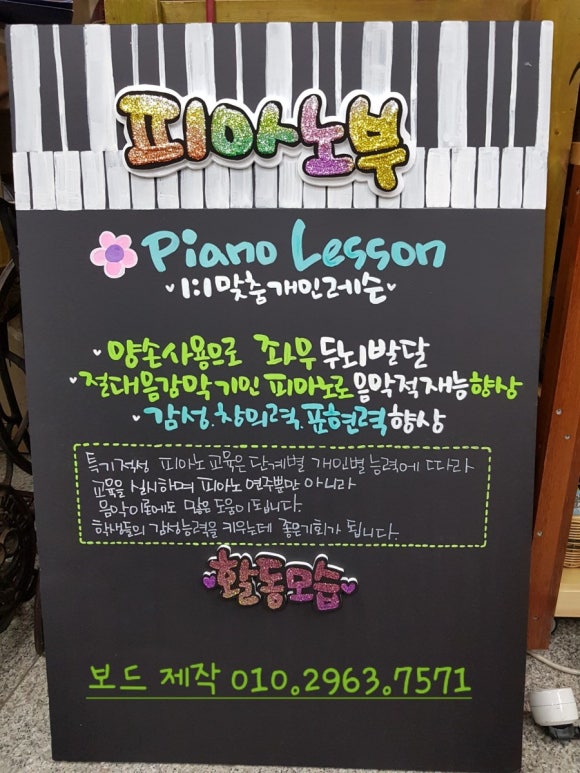 피아노부
Piano Lesson
1:1 맞춤개인레슨
양손사용으로 좌우 두뇌발달
절대음감악기인 피아노로 음악적재능향상
감성.창의력.표현력향상
특기적성 피아노 교육은 단계별 개인별 능력에 따라
교육을 실시하며 피아노 연주뿐만 아니라
음악이론에도 많은 도움이 됩니다.
학생들의 감성능력을 키우는데 좋은기회가 됩니다.
활동모습
보드 제작 010.2963.7571